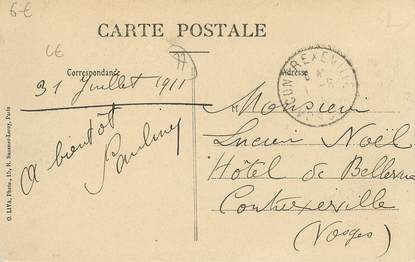 6€
6€
CARTE POSTALE
Correspondance
Adresse
31 Juillet 1911
A bientôt
CONTREXEVILLE
VOSGES
Monsieur
Lucien Noël
Hôtel de Bellevue
Contrexeville
(Vosges)
O. LIVA, Photo., 15, R. Sausseu-Leroy, Paris